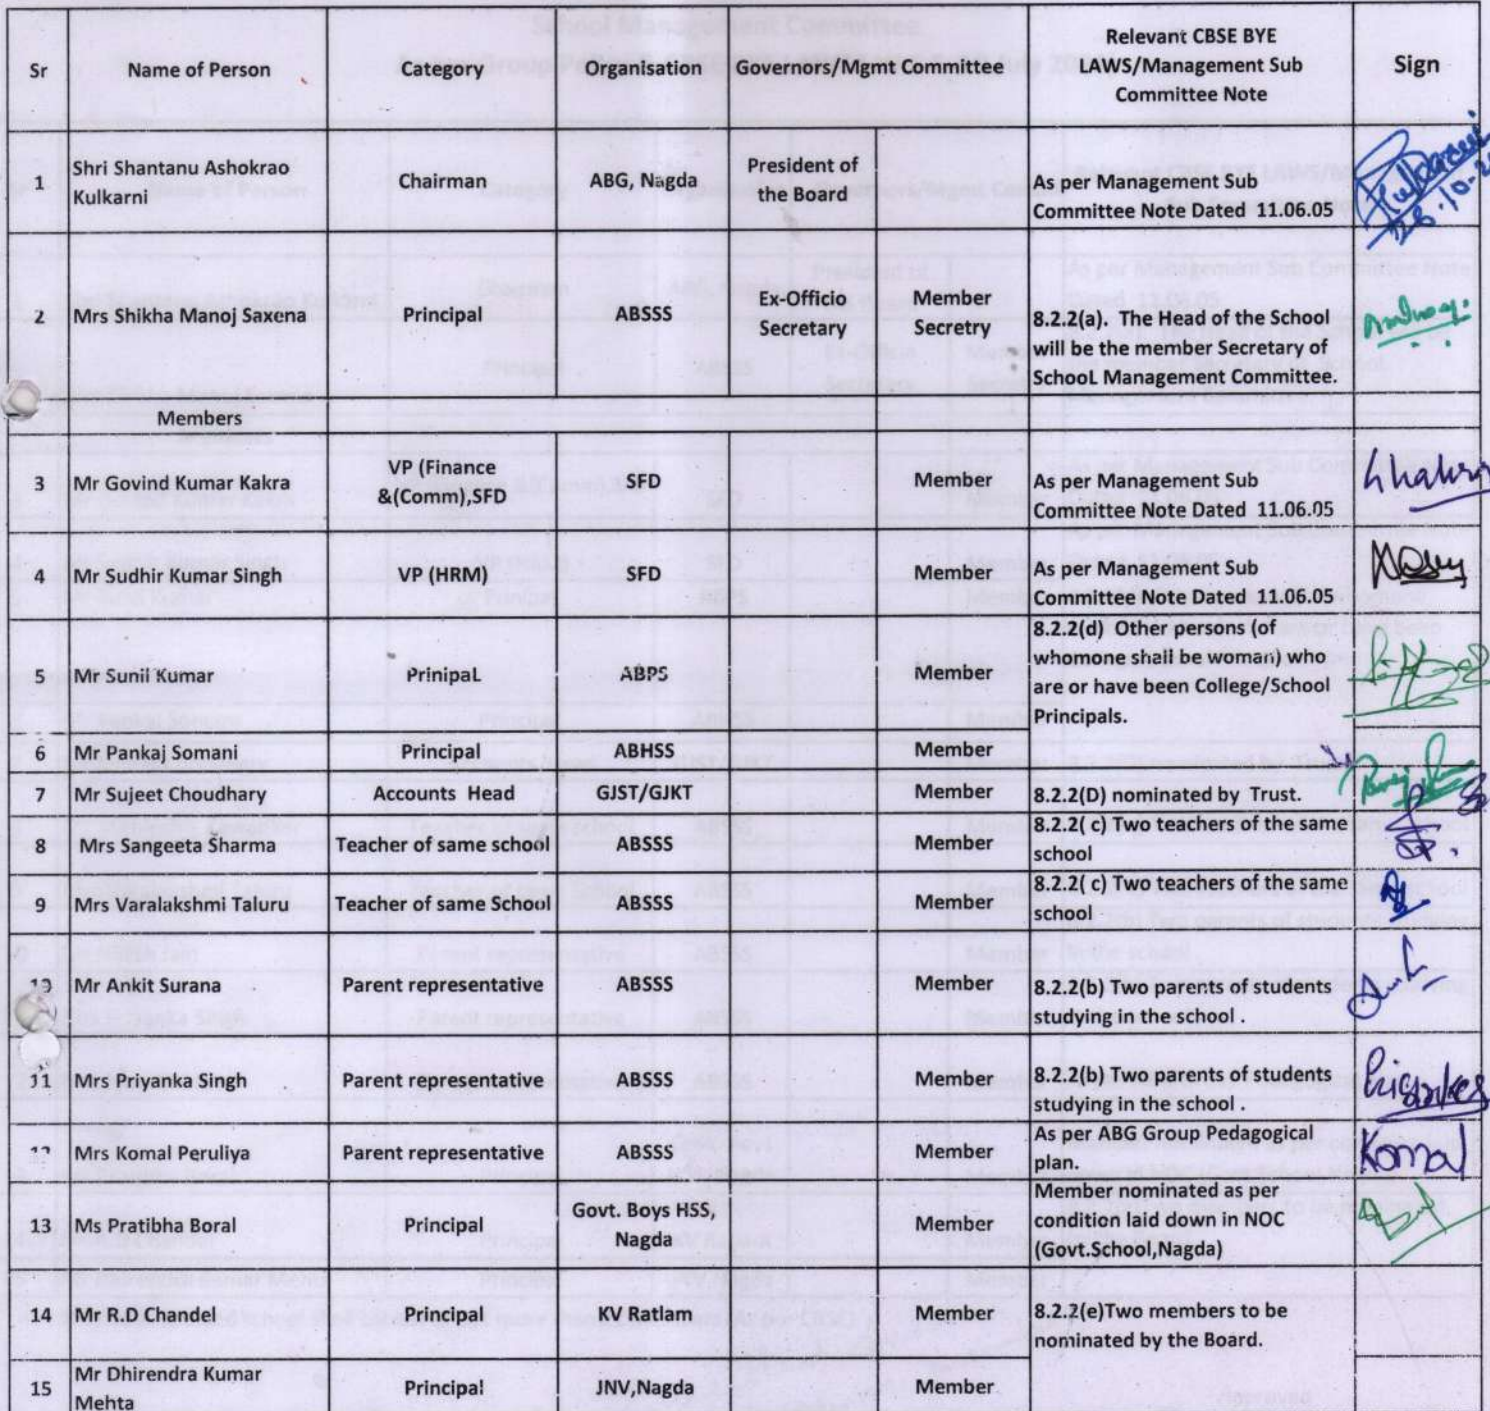 Sr
Name of Person
Category
Organisation
Governors/Mgmt Committee
Relevant CBSE BYE
LAWS/Management Sub
Committee Note
Sign
1
Shri Shantanu Ashokrao
Kulkarni
Chairman
ABG, Nagda
President of
the Board
As per Management Sub
Committee Note Dated 11.06.05
2
Mrs Shikha Manoj Saxena
Principal
ABSSS
Ex-Officio
Secretary
Member
Secretry
8.2.2(a). The Head of the School
will be the member Secretary of
SchooL Management Committee.
Members
3
Mr Govind Kumar Kakra
VP (Finance
&(Comm),SFD
SFD
Member
As per Management Sub
Committee Note Dated 11.06.05
4
Mr Sudhir Kumar Singh
VP (HRM)
SFD
Member
As per Management Sub
Committee Note Dated 11.06.05
5
Mr Sunil Kumar
PrinipaL
ABPS
Member
8.2.2(d) Other persons (of
whomone shall be woman) who
are or have been College/School
Principals.
6
Mr Pankaj Somani
Principal
ABHSS
Member
7
Mr Sujeet Choudhary
Accounts Head
GJST/GJKT
Member
8.2.2(D) nominated by Trust.
8
Mrs Sangeeta Sharma
Teacher of same school
ABSSS
Member
8.2.2( c) Two teachers of the same
school
9
Mrs Varalakshmi Taluru
Teacher of same School
ABSSS
Member
8.2.2( c) Two teachers of the same
school
Mr Ankit Surana
Parent representative
ABSSS
Member
8.2.2(b) Two parents of students
studying in the school .
11
Mrs Priyanka Singh
Parent representative
ABSSS
Member
8.2.2(b) Two parents of students
studying in the school .
Priyanka
Mrs Komal Peruliya
Parent representative
ABSSS
Member
As per ABG Group Pedagogical
plan.
Komal
13
Ms Pratibha Boral
Principal
Govt. Boys HSS,
Nagda
Member
Member nominated as per
condition laid down in NOC
(Govt.School,Nagda)
14
Mr R.D Chandel
Principal
KV Ratlam
Member
8.2.2(e)Two members to be
nominated by the Board.
15
Mr Dhirendra Kumar
Mehta
Principal
JNV,Nagda
Member